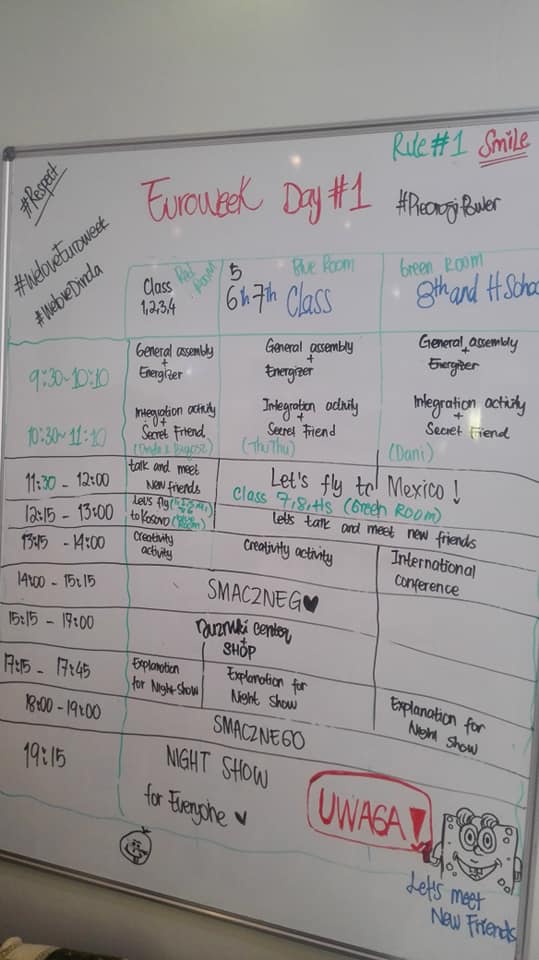 Rule #1 Smile
#Respect
Euroweek Day #1
#PierogiPower
#WeloveEuroweek
#WeloveDinda
Class Red Room
1,2,3,4
5 Blue Room
6th 7th Class
Green Room
8th and HSchoo
9:30-10:10
General assembly
+
Energizer
General assembly
+
Energizer
General assembly
+
Energizer
10:30-11:10
Integration activity
+
Secret Friend
Integration activity
+
Secret Friend
(ThuThu)
Integration activity
+
Secret Friend
(Dani)
11:30 - 12:00
talk and meet
New friends
Let's fly to Mexico!
Class 7,8,Hs (Green Room)
12:15 - 13:00
Let's fly
to Kosovo
Let's talk and meet new friends
13:15 - 14:00
Creativity
activity
Creativity activity
International
conference
14:00 - 15:15
SMACZNEG♥
15:15 - 17:00
Duszniki Center
+
SHOP
17:15 - 17:45
Explanation
for Night Show
Explanation for
Night Show
Explanation for
Night Show
18:00 - 19:00
SMACZNEGO
19:15
NIGHT SHOW
for Everyone ♥
UWAGA!
Let's meet
New Friends